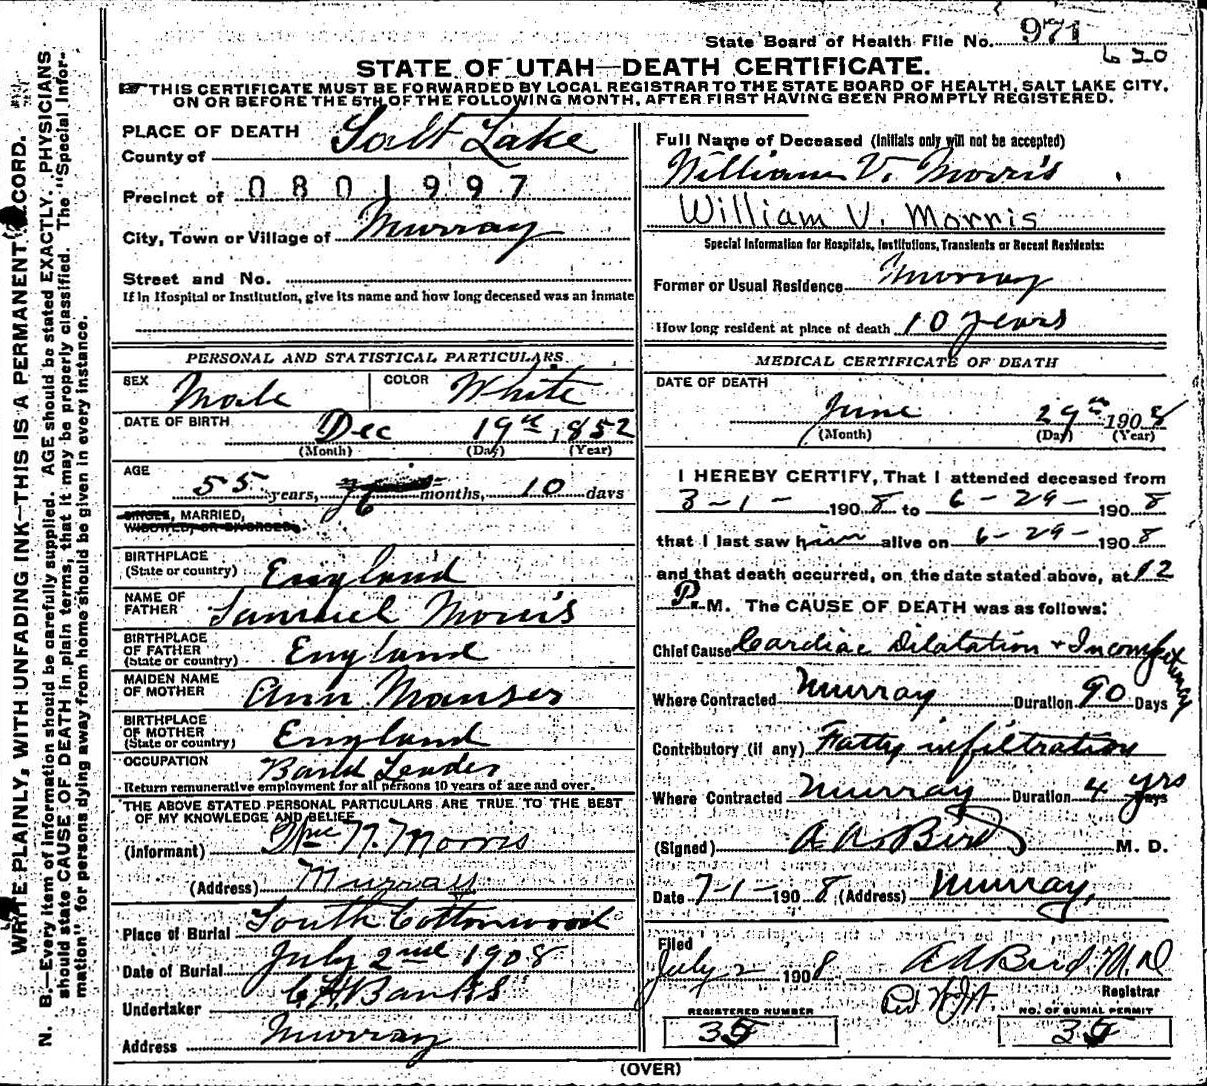 State Board of Health File No. 971
620
STATE OF UTAH—DEATH CERTIFICATE.
THIS CERTIFICATE MUST BE FORWARDED BY LOCAL REGISTRAR TO THE STATE BOARD OF HEALTH, SALT LAKE CITY,
ON OR BEFORE THE 5TH OF THE FOLLOWING MONTH, AFTER FIRST HAVING BEEN PROMPTLY REGISTERED.
WRITE PLAINLY, WITH UNFADING INK—THIS IS A PERMANENT RECORD.
N. B.—Every item of information should be carefully supplied. AGE should be stated EXACTLY. PHYSICIANS
should state CAUSE OF DEATH in plain terms, that it may be properly classified. The "Special Infor-
mation" for persons dying away from home should be given in every instance.
PLACE OF DEATH
County of Salt Lake
Precinct of 0801997
City, Town or Village of Murray
Street and No.
If in Hospital or Institution, give its name and how long deceased was an inmate
PERSONAL AND STATISTICAL PARTICULARS
SEX Male COLOR White
DATE OF BIRTH Dec 19th, 1852
(Month) (Day) (Year)
AGE
55 years, 6 months, 10 days
SINGLE, MARRIED,
WIDOWED, OR DIVORCED.
BIRTHPLACE
(State or country) England
NAME OF
FATHER Samuel Morris
BIRTHPLACE
OF FATHER
(State or country) England
MAIDEN NAME
OF MOTHER Ann
BIRTHPLACE
OF MOTHER
(State or country) England
OCCUPATION Band Leader
Return remunerative employment for all persons 10 years of age and over.
THE ABOVE STATED PERSONAL PARTICULARS ARE TRUE TO THE BEST
OF MY KNOWLEDGE AND BELIEF
(Informant) Morris
(Address) Murray
Place of Burial South Cottonwood
Date of Burial July 2nd 1908
Undertaker Banks
Address Murray
Full Name of Deceased (initials only will not be accepted)
William V. Morris
William V. Morris
Special Information for Hospitals, Institutions, Transients or Recent Residents:
Former or Usual Residence Murray
How long resident at place of death 10 years
MEDICAL CERTIFICATE OF DEATH
DATE OF DEATH
June 29th 1908
(Month) (Day) (Year)
I HEREBY CERTIFY, That I attended deceased from
3-1- 1908 to 6-29- 1908
that I last saw him alive on 6-29- 1908
and that death occurred, on the date stated above, at 12
P. M. The CAUSE OF DEATH was as follows:
Chief Cause Cardiac Dilatation + Incompetency
Where Contracted Murray Duration 90 Days
Contributory (if any) Fatty infiltration
Where Contracted Murray Duration 4 yrs Days
(Signed) A A Bird M. D.
Date 7-1-1908 (Address) Murray,
Filed
July 2 1908 A A Bird M D
Registrar
REGISTERED NUMBER NO. OF BURIAL PERMIT
35 35
(OVER)